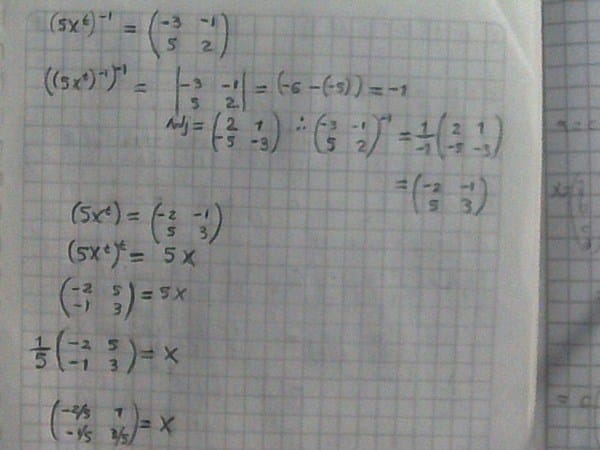 (5x^t)^-1 = (-3 -1
5 2)
((5x^t)^-1)^-1 = |-3 -1
5 2| = (-6 - (-5)) = -1
Adj = (2 1
-5 -3) ∴ (-3 -1
5 2)^-1 = 1/-1 (2 1
-5 -3)
= (-2 -1
5 3)
(5x^t) = (-2 -1
5 3)
(5x^t)^t = 5x
(-2 5
-1 3) = 5x
1/5 (-2 5
-1 3) = x
(-2/5 1
-1/5 3/5) = x